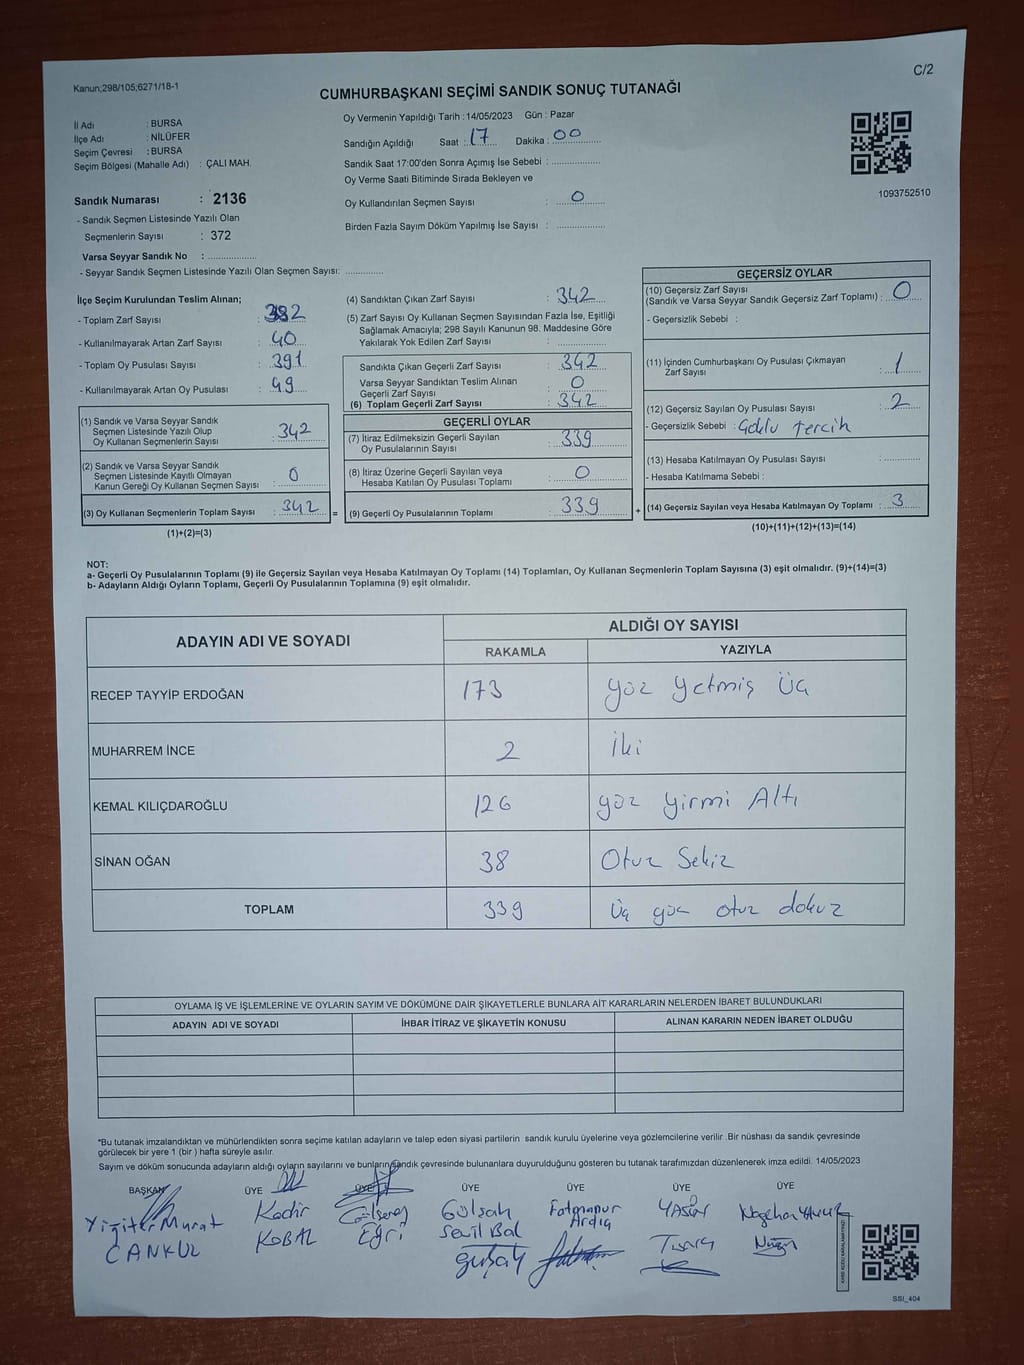 C/2
Kanun;298/105;6271/18-1
CUMHURBAŞKANI SEÇİMİ SANDIK SONUÇ TUTANAĞI
İl Adı : BURSA
İlçe Adı : NİLÜFER
Seçim Çevresi : BURSA
Seçim Bölgesi (Mahalle Adı) : ÇALI MAH.
Sandık Numarası : 2136
- Sandık Seçmen Listesinde Yazılı Olan
Seçmenlerin Sayısı : 372
Varsa Seyyar Sandık No : ....................
- Seyyar Sandık Seçmen Listesinde Yazılı Olan Seçmen Sayısı: ...............
Oy Vermenin Yapıldığı Tarih : 14/05/2023 Gün : Pazar
Sandığın Açıldığı Saat : 17 Dakika : 00
Sandık Saat 17:00'den Sonra Açımış İse Sebebi : ....................
Oy Verme Saati Bitiminde Sırada Bekleyen ve
Oy Kullandırılan Seçmen Sayısı : 0
Birden Fazla Sayım Döküm Yapılmış İse Sayısı : ....................
1093752510
İlçe Seçim Kurulundan Teslim Alınan;
- Toplam Zarf Sayısı : 382
- Kullanılmayarak Artan Zarf Sayısı : 40
- Toplam Oy Pusulası Sayısı : 391
- Kullanılmayarak Artan Oy Pusulası : 49
(1) Sandık ve Varsa Seyyar Sandık
Seçmen Listesinde Yazılı Olup
Oy Kullanan Seçmenlerin Sayısı : 342
(2) Sandık ve Varsa Seyyar Sandık
Seçmen Listesinde Kayıtlı Olmayan
Kanun Gereği Oy Kullanan Seçmen Sayısı : 0
(3) Oy Kullanan Seçmenlerin Toplam Sayısı : 342 =
(1)+(2)=(3)
(4) Sandıktan Çıkan Zarf Sayısı : 342
(5) Zarf Sayısı Oy Kullanan Seçmen Sayısından Fazla İse, Eşitliği
Sağlamak Amacıyla; 298 Sayılı Kanunun 98. Maddesine Göre
Yakılarak Yok Edilen Zarf Sayısı : ....................
Sandıkta Çıkan Geçerli Zarf Sayısı : 342
Varsa Seyyar Sandıktan Teslim Alınan
Geçerli Zarf Sayısı : 0
(6) Toplam Geçerli Zarf Sayısı : 342
GEÇERLİ OYLAR
(7) İtiraz Edilmeksizin Geçerli Sayılan
Oy Pusulalarının Sayısı : 339
(8) İtiraz Üzerine Geçerli Sayılan veya
Hesaba Katılan Oy Pusulası Toplamı : 0
(9) Geçerli Oy Pusulalarının Toplamı : 339 +
GEÇERSİZ OYLAR
(10) Geçersiz Zarf Sayısı
(Sandık ve Varsa Seyyar Sandık Geçersiz Zarf Toplamı) : 0
- Geçersizlik Sebebi :
(11) İçinden Cumhurbaşkanı Oy Pusulası Çıkmayan
Zarf Sayısı : 1
(12) Geçersiz Sayılan Oy Pusulası Sayısı : 2
- Geçersizlik Sebebi : tercih
(13) Hesaba Katılmayan Oy Pusulası Sayısı : ...............
- Hesaba Katılmama Sebebi :
(14) Geçersiz Sayılan veya Hesaba Katılmayan Oy Toplamı : 3
(10)+(11)+(12)+(13)=(14)
NOT:
a- Geçerli Oy Pusulalarının Toplamı (9) ile Geçersiz Sayılan veya Hesaba Katılmayan Oy Toplamı (14) Toplamları, Oy Kullanan Seçmenlerin Toplam Sayısına (3) eşit olmalıdır. (9)+(14)=(3)
b- Adayların Aldığı Oyların Toplamı, Geçerli Oy Pusulalarının Toplamına (9) eşit olmalıdır.
ADAYIN ADI VE SOYADI
ALDIĞI OY SAYISI
RAKAMLA YAZIYLA
RECEP TAYYİP ERDOĞAN 173 yüz yetmiş üç
MUHARREM İNCE 2 İki
KEMAL KILIÇDAROĞLU 126 yüz yirmi Altı
SİNAN OĞAN 38 Otuz Sekiz
TOPLAM 339 üç yüz otuz dokuz
OYLAMA İŞ VE İŞLEMLERİNE VE OYLARIN SAYIM VE DÖKÜMÜNE DAİR ŞİKAYETLERLE BUNLARA AİT KARARLARIN NELERDEN İBARET BULUNDUKLARI
ADAYIN ADI VE SOYADI İHBAR İTİRAZ VE ŞİKAYETİN KONUSU ALINAN KARARIN NEDEN İBARET OLDUĞU
*Bu tutanak imzalandıktan ve mühürlendikten sonra seçime katılan adayların ve talep eden siyasi partilerin sandık kurulu üyelerine veya gözlemcilerine verilir .Bir nüshası da sandık çevresinde
görülecek bir yere 1 (bir ) hafta süreyle asılır.
Sayım ve döküm sonucunda adayların aldığı oyların sayılarını ve bunların sandık çevresinde bulunanlara duyurulduğunu gösteren bu tutanak tarafımızdan düzenlenerek imza edildi. 14/05/2023
BAŞKAN ÜYE ÜYE ÜYE ÜYE ÜYE ÜYE
Yiğiter Murat Kadir Gülseren Gülşah Fatmanur YAŞAR
CANKUL KOBAL Eğri Sevil Bal Ardıç
SSI_404